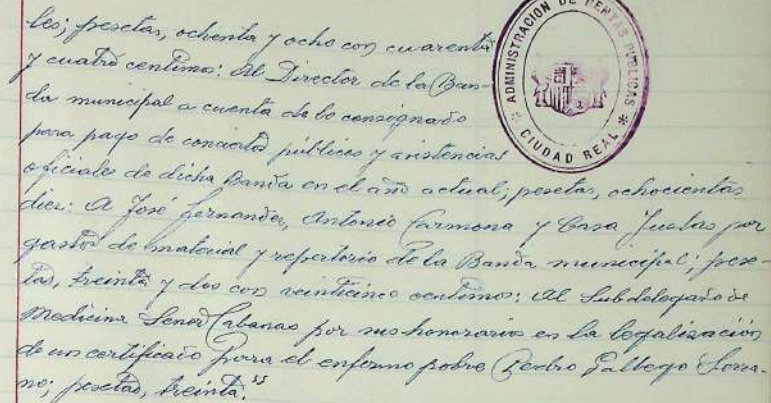 les; pesetas, ochenta y ocho con cuarenta
y cuatro centimos: Al Director de la Ban-
da municipal a cuenta de lo consignado
para pago de conciertos públicos y asistencias
oficiales de dicha Banda en el año actual; pesetas, ochocientas
diez: A José Fernandez, Antonio Carmona y Casa Justas por
gastos de material y repertorio de la Banda municipal; pese-
tas, treinta y dos con veinticinco centimos: Al Subdelegado de
Medicina Señor Cabanas por sus honorarios en la legalización
de un certificado para el enfermo pobre Pedro Gallego Serra-
no; pesetas, treinta.
ADMINISTRACION DE RENTAS PUBLICAS
* CIUDAD REAL *